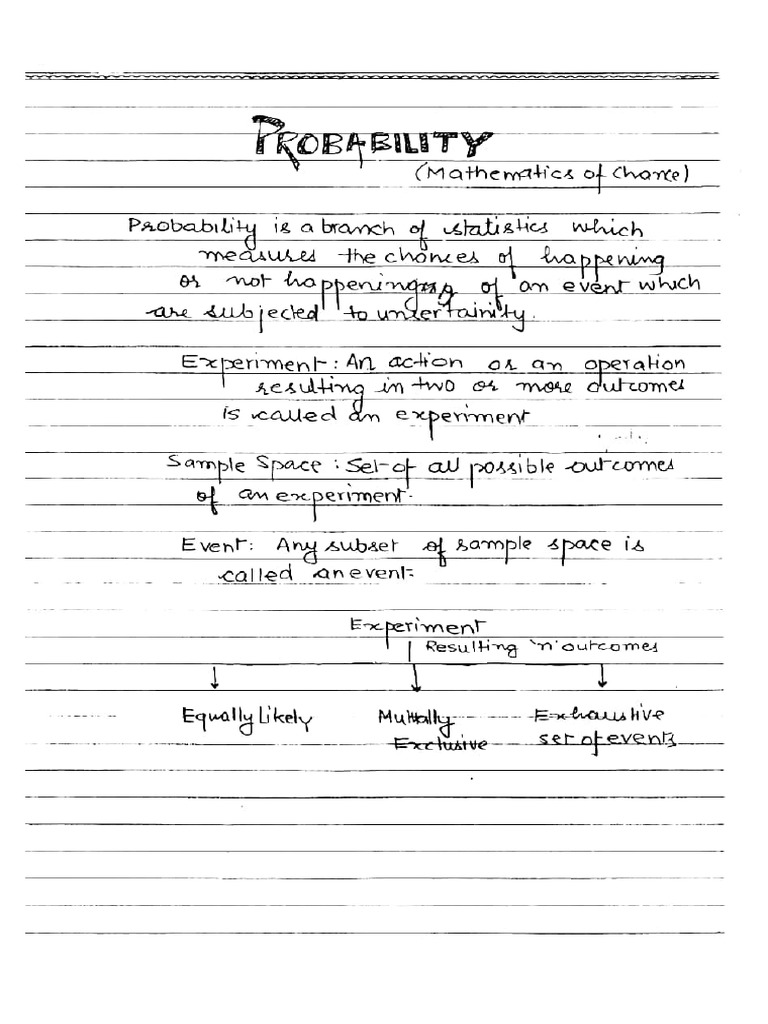 PROBABILITY
(Mathematics of Chance)
Probability is a branch of statistics which
measures the chances of happening
or not happening of an event which
are subjected to uncertainity.
Experiment: An action or an operation
resulting in two or more outcomes
is called an experiment
Sample Space: Set of all possible outcomes
of an experiment.
Event: Any subset of sample space is
called an event.
Experiment
Resulting 'n' outcomes
Equally Likely Mutually Exhaustive
Exclusive set of events